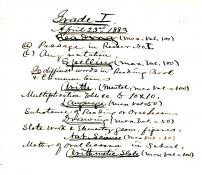 Grade I.
April 23rd 1883
Reading (max. val. 100)
(a) Passage in Reader No. I
(b) Any
Spelling (max. val. 100)
20 different words in Reading Book
& Common terms
(mental, max. val. 100)
Multiplication Table to 10x10.
Language (max. val. 50)
Substance of Reading or Oral lesson
Drawing (max. val. 50)
Slate Work & Elementary Geom. figures.
Science (max. val. 50)
Matter of oral lessons in School.
Arithmetic Slate (max. val. 100)